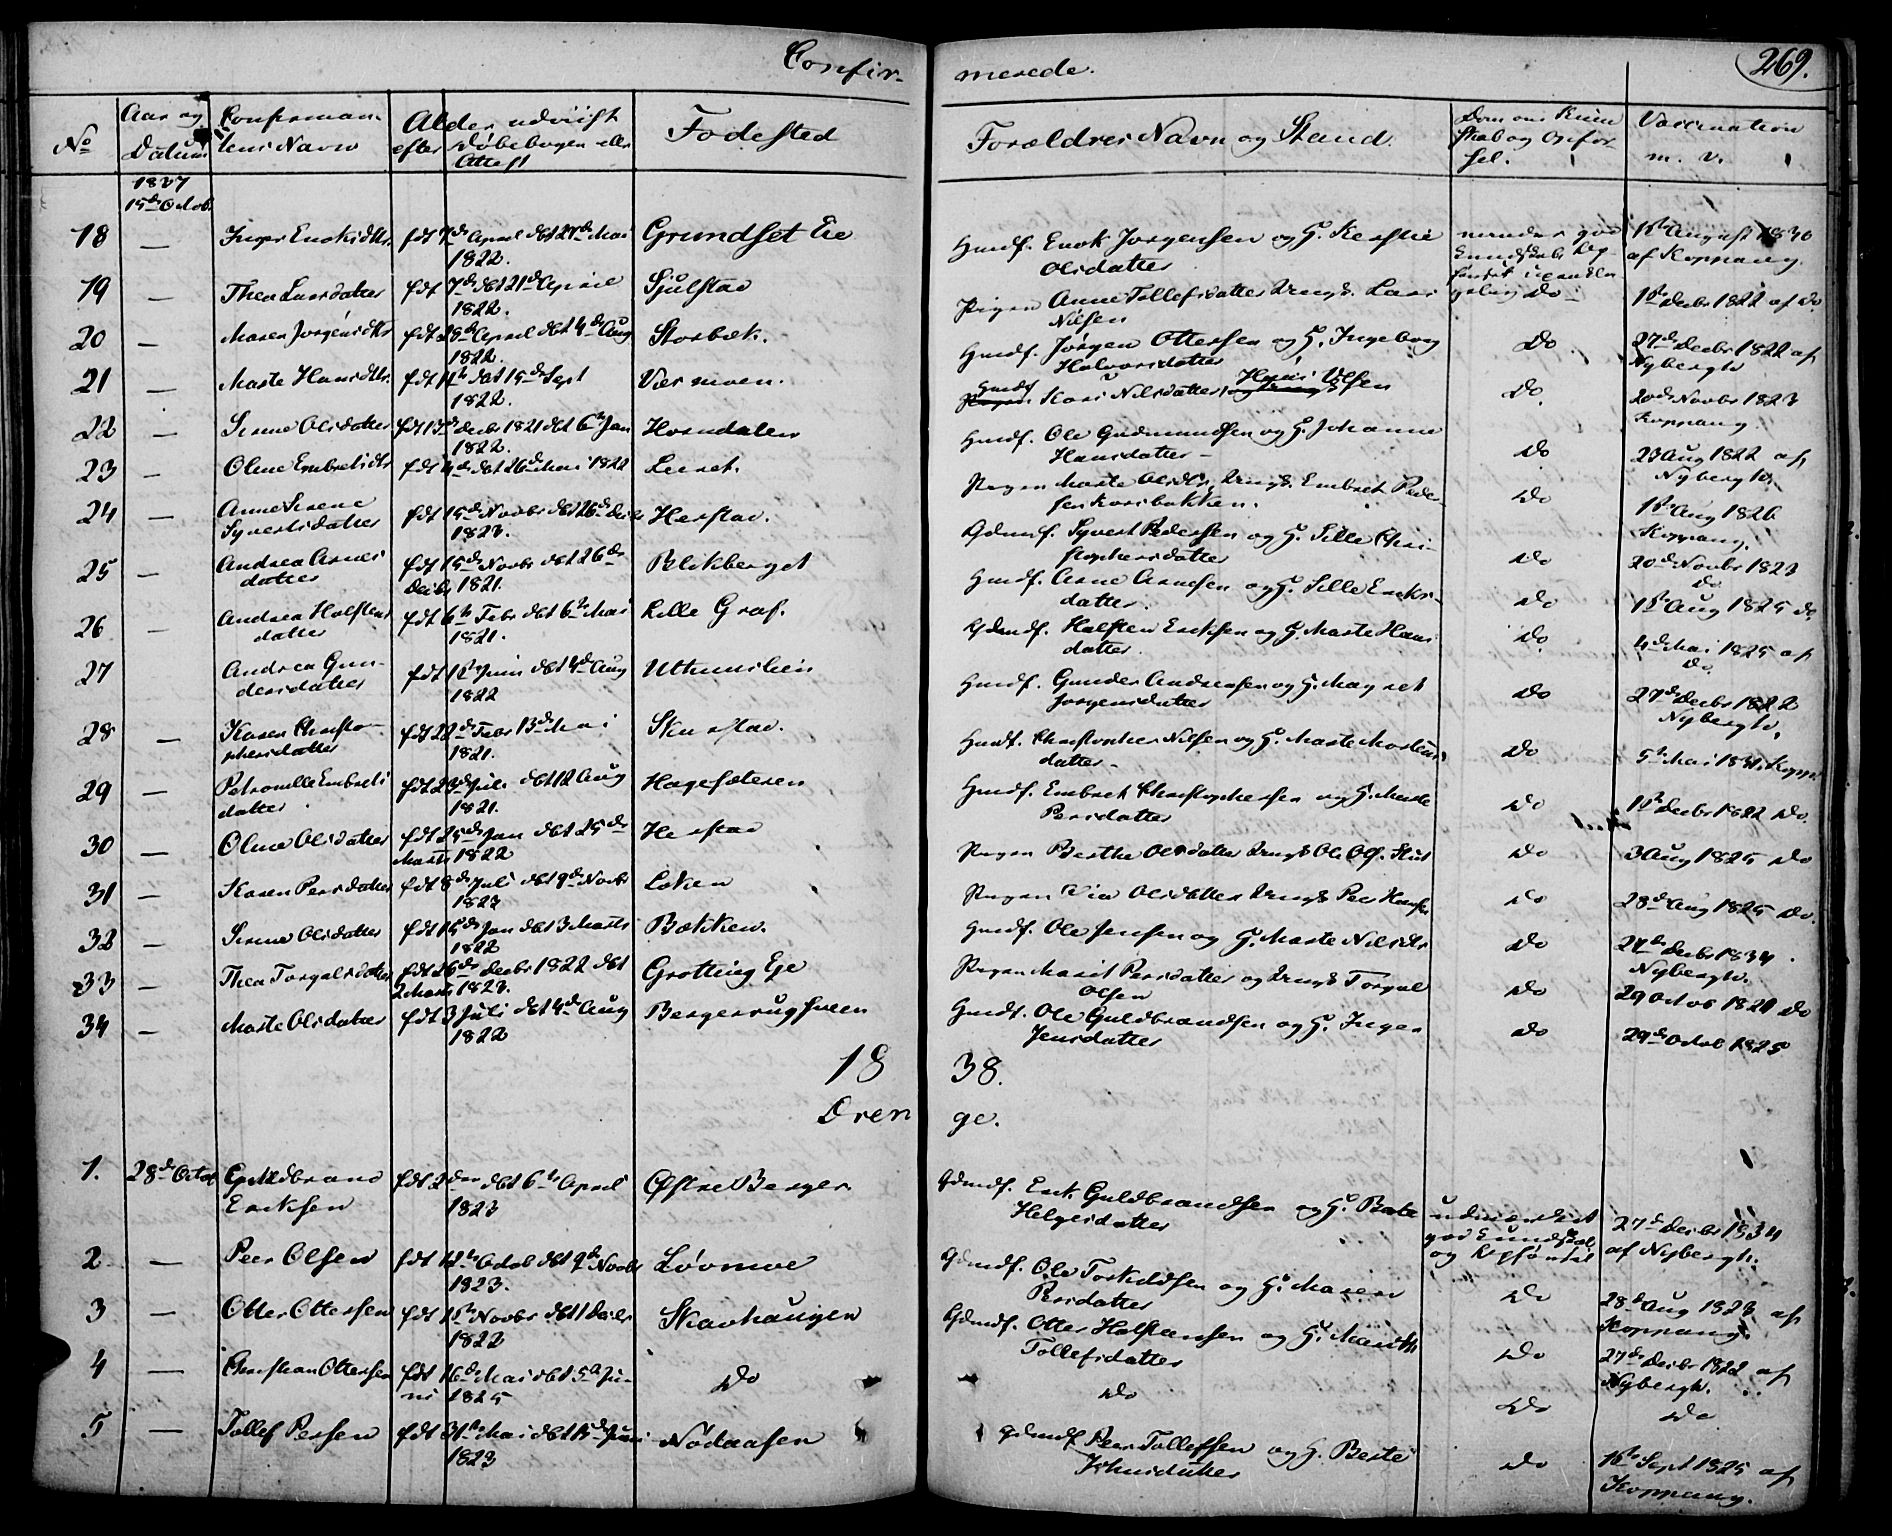 Confir-
merede.
269.
No
Aar og
Datum
Confirman-
tens Navn
Alder udviist
efter Døbebogen eller
Attest
Fødested
Forældres Navn og Stand.
Dom om Kund
skab og Opfør
sel.
Vaccination
m. v.
1837
15de Octob.
18 — Inger Enoksdtr. fdt 7de April dbt 27de Mai
1822.
Grundset Eie
Huusmf. Enok Jørgensen og H. Kerstie
Olsdatter
af Koppang.
19 — Thea Larsdatter fdt 7de dbt 21de April
1822.
Sjulstad
Pigen Anne Tollefsdatter Ungk. Lars
Nilsen
Do
1ste Decbr 1822 af do.
20 — Maren Jørgensdtr fdt 28de April dbt 4de Aug
1822.
Storbæk.
Huusmf. Jørgen Ottersen og H. Ingeborg
Halvorsdatter
Do
27de Decbr 1822 af
Nybergh
21 — Marte Hansdtr. fdt dbt 15de Sept
1822.
Værmoen.
Kari Nilsdatter Hans Olsen
Do.
20de Novbr 1823
Koppang.
22 — Serine Olsdatter fdt 13de Decbr 1821 dbt 6te Jan
1822.
Horndalen
Huusmf. Ole Gudmundsen og H. Johanne
Hansdatter
Do
23 Aug 1822 af
Nybergh.
23 — Oline Embretsdtr fdt 4de dbt 26de Mai 1822 Leeret.
Pigen Marte Olsdtr, Ungk. Embret Peder-
sen
Do
Aug 1826
Koppang.
24 — Anne Serene
Syversdatter
fdt 15de Novbr dbt 26de Decbr
1823.
Herstad.
Gdmf. Syvert Pedersen og H. Sille Chri-
stophersdatter
Do
20de Novbr 1823
Do
25 — Andrea Arnes
datter
fdt 15de Novbr dbt 26de
Decbr 1821.
Blikberget
Huusmf. Arne Arnesen og H. Sille Eriks-
datter.
Do
Aug 1825 Do.
26 — Andrea Halstens
datter
fdt 6te Febr dbt 6te Mai
1821.
Lille Graf.
Gdmf. Halsten Eriksen og H. Marte Hans
datter.
Do.
4de Mai 1825 af
Do.
27 — Andrea Gun-
dersdatter
fdt Juni dbt 4de Aug
1822
Uthuuslien
Huusmf. Gunder Andersen og H. Magret
Jørgensdatter
Do
27de Decbr 1822
Nybergh.
28 — Karen Christo-
phersdatter
fdt 22de Febr 13de Mai
1821.
Huusmf. Christopher Nilsen og H. Marte Mortens
datter.
Do
5te Mai 1831. Kopp.
29 — Petronelle Embrets
datter
fdt 29de Juli dbt 12 Aug
1821.
Hagesæteren
Huusmf. Embret Christophersen og H. Marte
Persdatter
Do
1ste Decbr 1822 Do.
30 — Oline Olsdatter fdt 25de Jan dbt 25de
Marts 1822
Herstad
Pigen Berthe Olsdatter Ungk Ole Ols.
Do
3 Aug 1825 Do
31 — Karen Persdatter fdt 8de Juli dbt 9de Novbr
1823
Løken
Pigen Olsdatter Ungk Peer Hansen
Do
28de Aug 1825 Do.
32 — Serine Olsdatter fdt 15de Jan dbt 3 Marts
1822
Bækken.
Huusmf. Ole Jensen og H. Marte Nilsdtr
Do
27de Decbr 1834.
Nybergh.
33 — Thea Torgalsdatter fdt 26de Decbr 1822 dbt
2 Marts 1823.
Grøtting Eje
Pigen Marit Persdatter og Ungk Torgal
Olsen
Do
29 Octob 1829 Do
34 — Marte Olsdatter fdt 3 Juli dbt 4de Aug
1822
Bergersrugsveen
Huusmf. Ole Guldbrandsen og H. Inger
Jensdatter
Do
29de Octob 1825
18 38.
Dren ge.
1. 28de Octob Guldbrand
Eriksen
fdt 2den dbt 6te April
1823
Østre Berger
Gdmf. Erik Guldbrandsen og H. Berte
Helgesdatter
udmærket
god Kundskab
og Opførsel
27de Decbr 1834
af Nybergh.
2 — Peer Olsen fdt 12te Octob dbt 9de Novbr
1823.
Løvmoe
Gdmf. Ole Torkildsen og H. Maren
Persdatter
Do
28de Aug 1823 af
Koppang.
3 — Otter Ottersen fdt 1ste Novbr dbt 1 Decbr
1822
Skavhaugen
Gdmf. Otter Halstensen og H. Marith
Tollefsdatter
Do
27de Decbr 1822 af
Nybergh.
4 — Christian Ottersen fdt 16de Mai dbt 5te Ju-
ni 1825
Do
Do
Do
Do
5 — Tollef Persen fdt 31te Mai dbt 15de Juni
1823
Nødaasen
Gdmf Peer Tollefsen og H. Berte
Johnsdatter
Do
16te Sept 1825 af
Koppang.